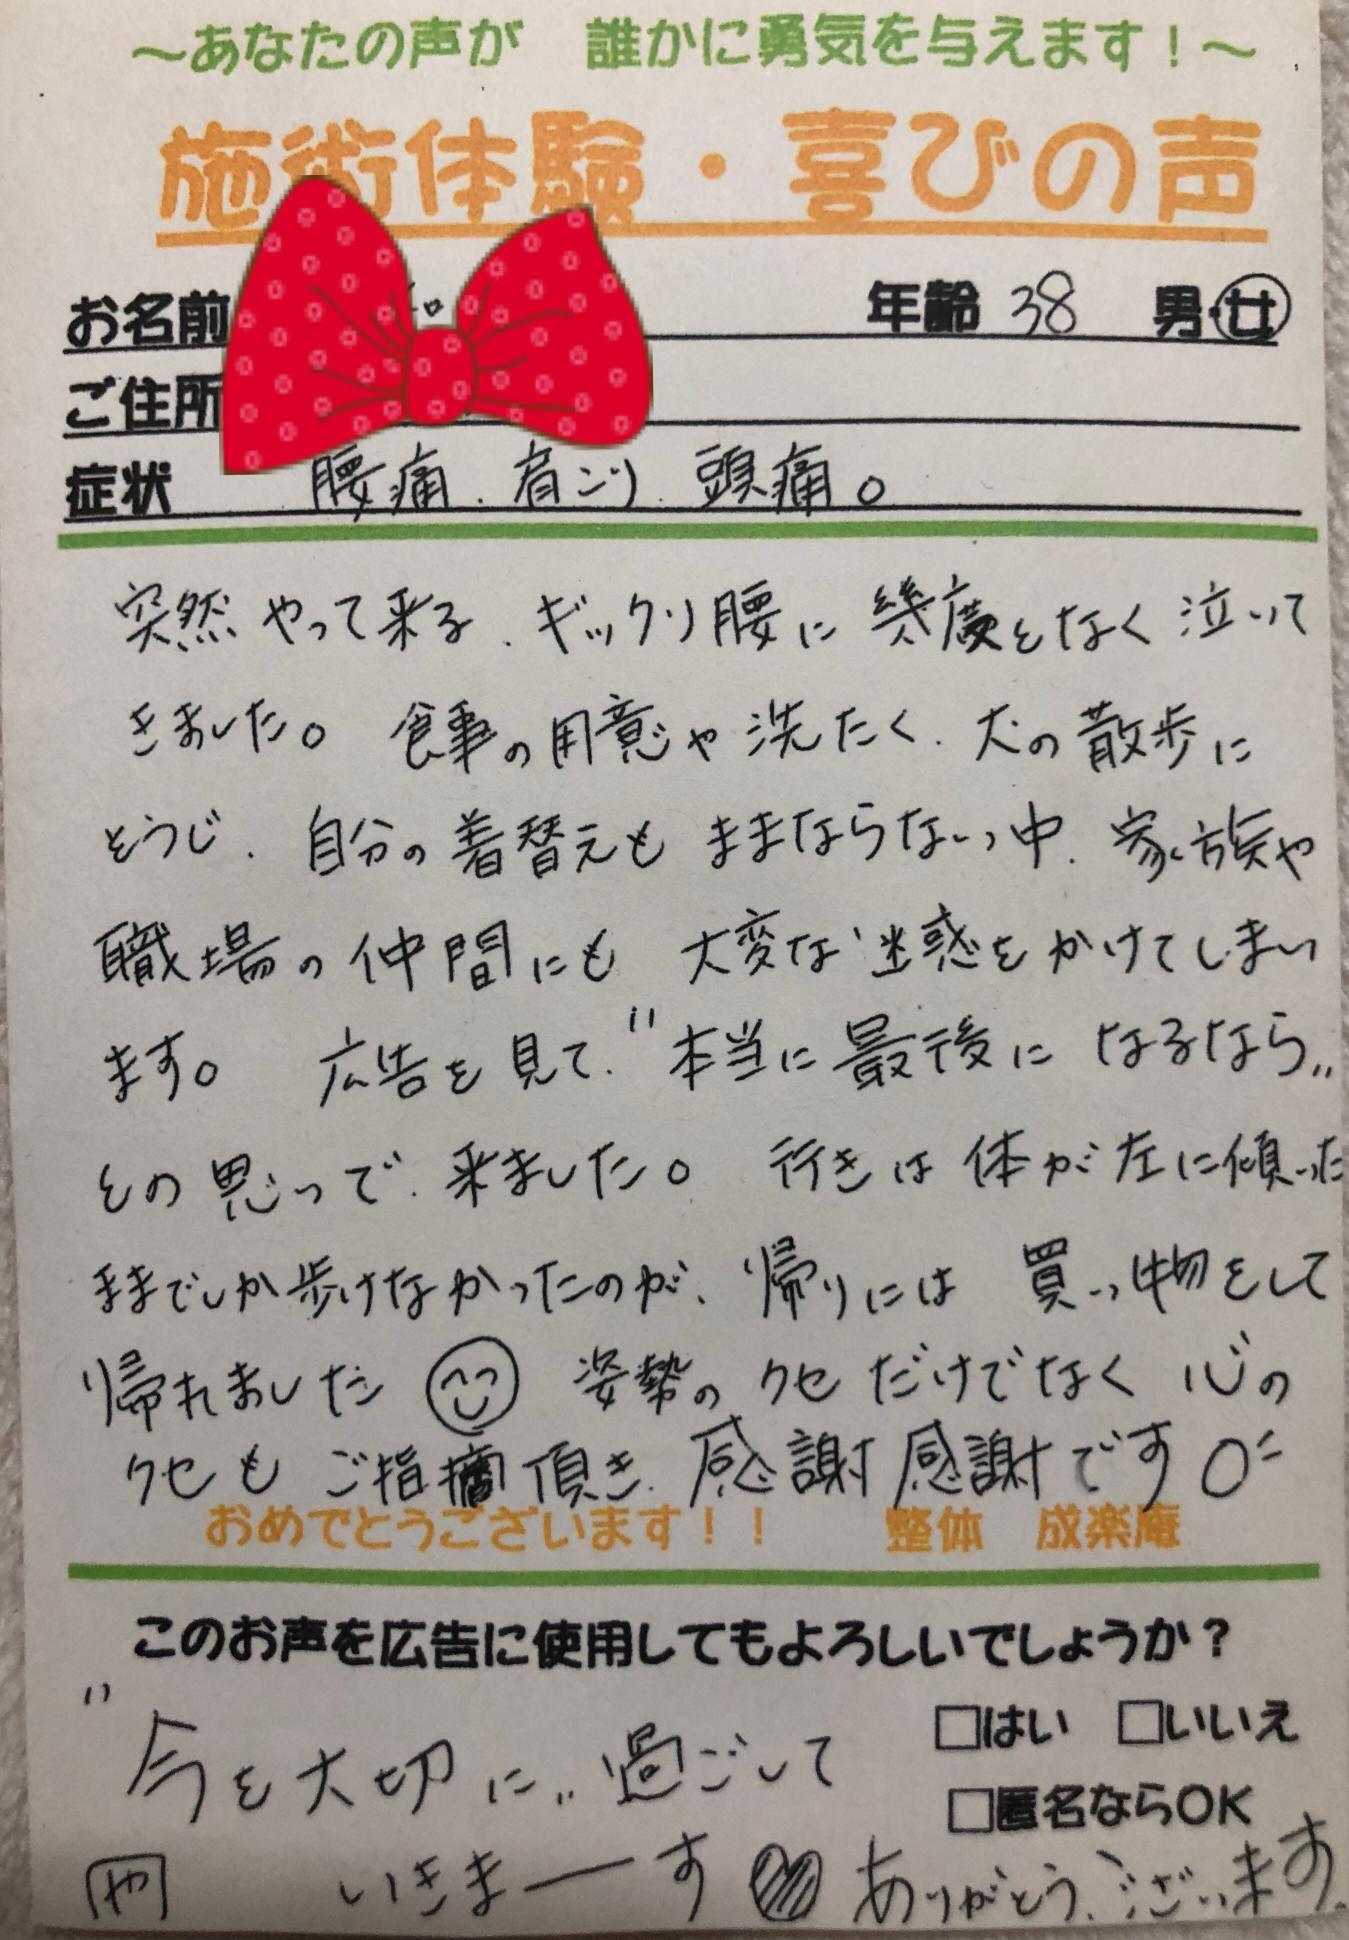 ～あなたの声が　誰かに勇気を与えます！～
施術体験・喜びの声
お名前
年齢 38 男・女
ご住所
症状 腰痛、肩こり、頭痛。
突然やって来る、ギックリ腰に幾度となく泣いて
きました。食事の用意や洗たく、犬の散歩に
そうじ、自分の着替えもままならない中、家族や
職場の仲間にも大変な迷惑をかけてしまい
ます。広告を見て、"本当に最後になるなら"
その思いで、来ました。行きは体が左に傾いた
ままでしか歩けなかったのが、帰りには買い物をして
帰れました 姿勢のクセだけでなく心の
クセもご指摘頂き、感謝感謝です
おめでとうございます！！　整体　成楽庵
このお声を広告に使用してもよろしいでしょうか？
□はい □いいえ
□匿名ならOK
"今を大切に"過ごして
いきまーす♥ありがとう、ございます。
や